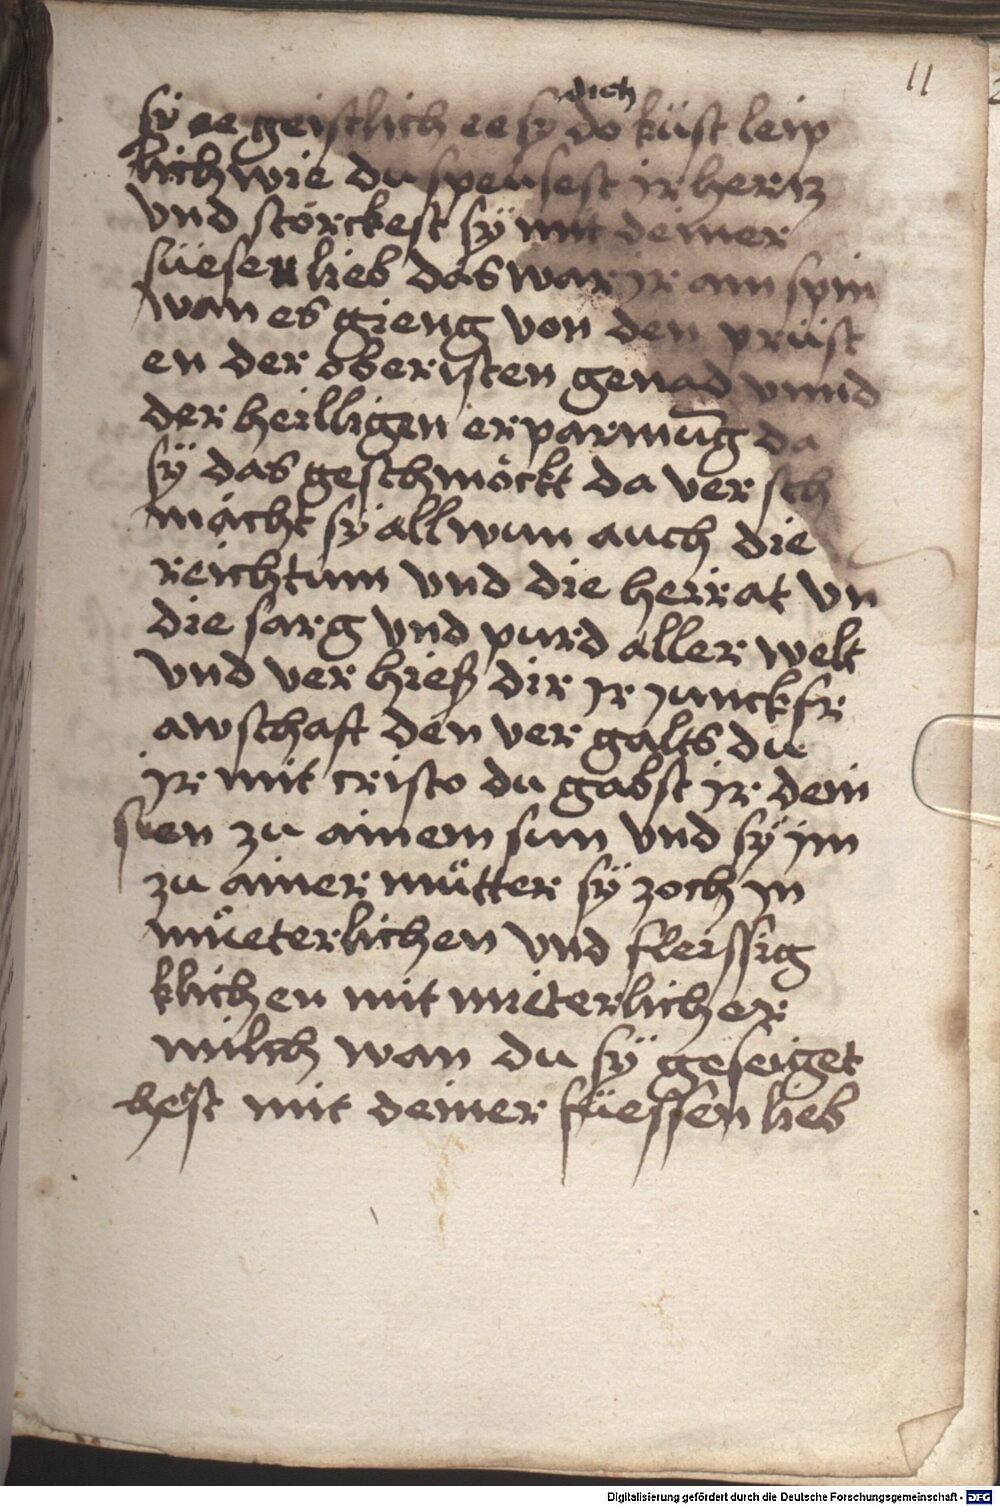 11
dich
sÿ ee geistlich ee sy do küst leip
lich wie du speüsest jr hertz
vnd störckest sÿ mit deiner
süesen lieb das war jr am spin
wan es gieng von den prüst
en der oberisten genad vnnd
der heilligen erparmūg da
sÿ das geschmöckt da ver sch
mächt sÿ all wun auch die
reichtum vnd die herrat vn
die sarg vnd purd aller welt
vnd ver hieß dir jr junckfr
awschaft den ver galts du
jr mit cristo du gabst jr dein
suen zu ainem sun vnd sÿ jm
zu ainer mütter sÿ zoch in
müeterlichen vnd fleissig
klichen mit müeterlicher
milch wan du sÿ geseiget
hest mit deiner süessen lieb
Digitalisierung gefördert durch die Deutsche Forschungsgemeinschaft - DFG